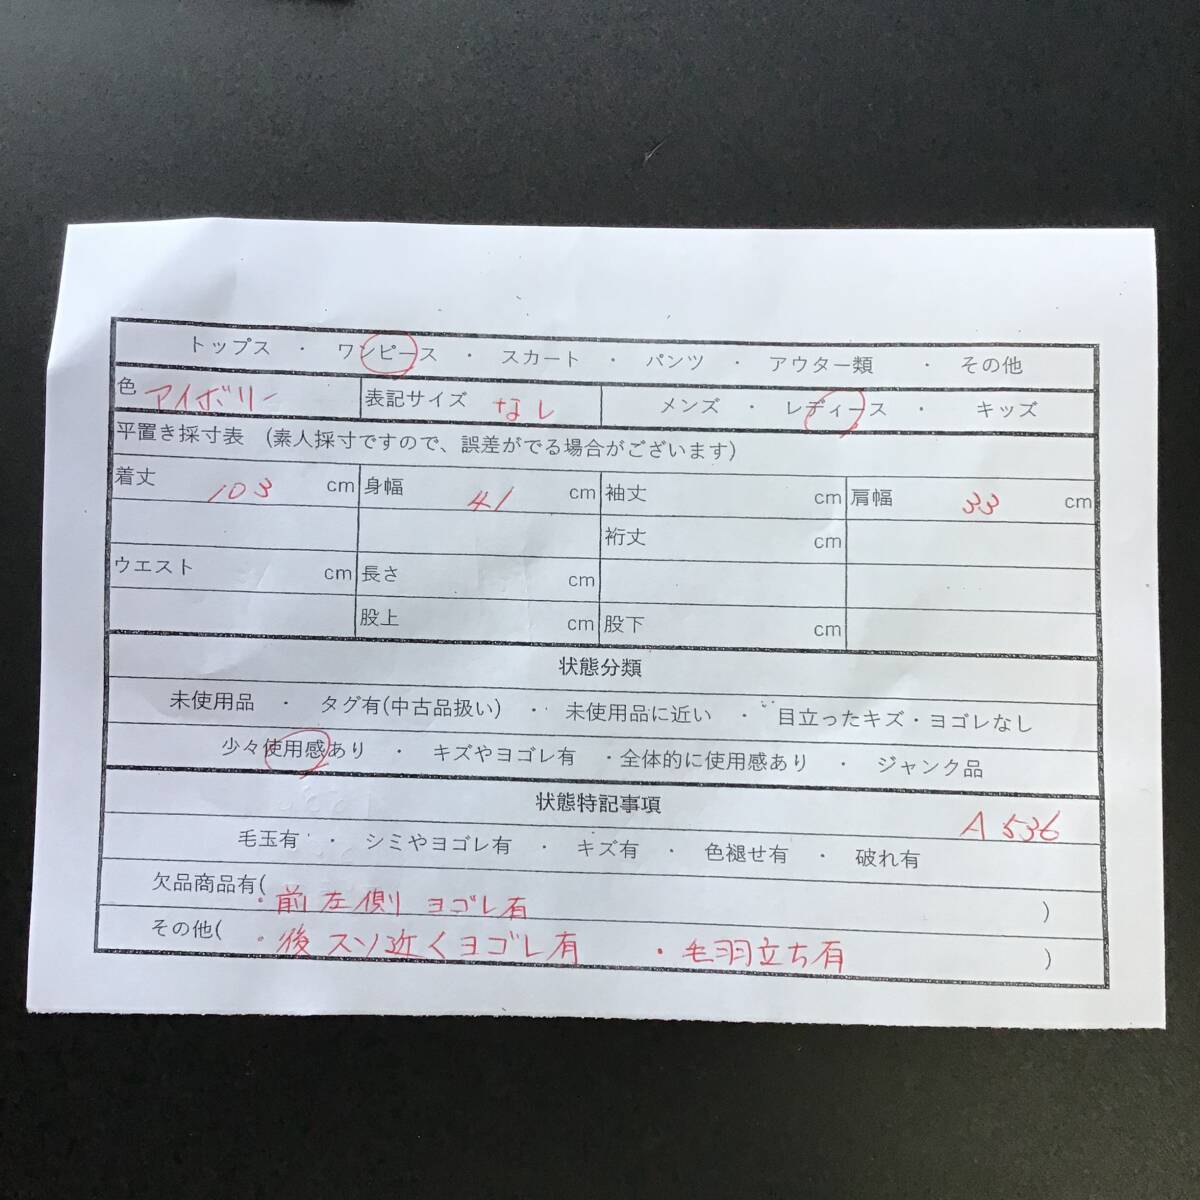 トップス ・ ワンピース ・ スカート ・ パンツ ・ アウター類 ・ その他
色 アイボリー 表記サイズ なし メンズ ・ レディース ・ キッズ
平置き採寸表 (素人採寸ですので、誤差がでる場合がございます)
着丈 103 cm 身幅 41 cm 袖丈 cm 肩幅 33 cm
裄丈 cm
ウエスト cm 長さ cm
股上 cm 股下 cm
状態分類
未使用品 ・ タグ有(中古品扱い) ・ 未使用品に近い ・ 目立ったキズ・ヨゴレなし
少々使用感あり ・ キズやヨゴレ有 ・全体的に使用感あり ・ ジャンク品
状態特記事項 A536
毛玉有 ・ シミやヨゴレ有 ・ キズ有 ・ 色褪せ有 ・ 破れ有
欠品商品有(・前左側ヨゴレ有 )
その他(・後スソ近くヨゴレ有 ・毛羽立ち有 )